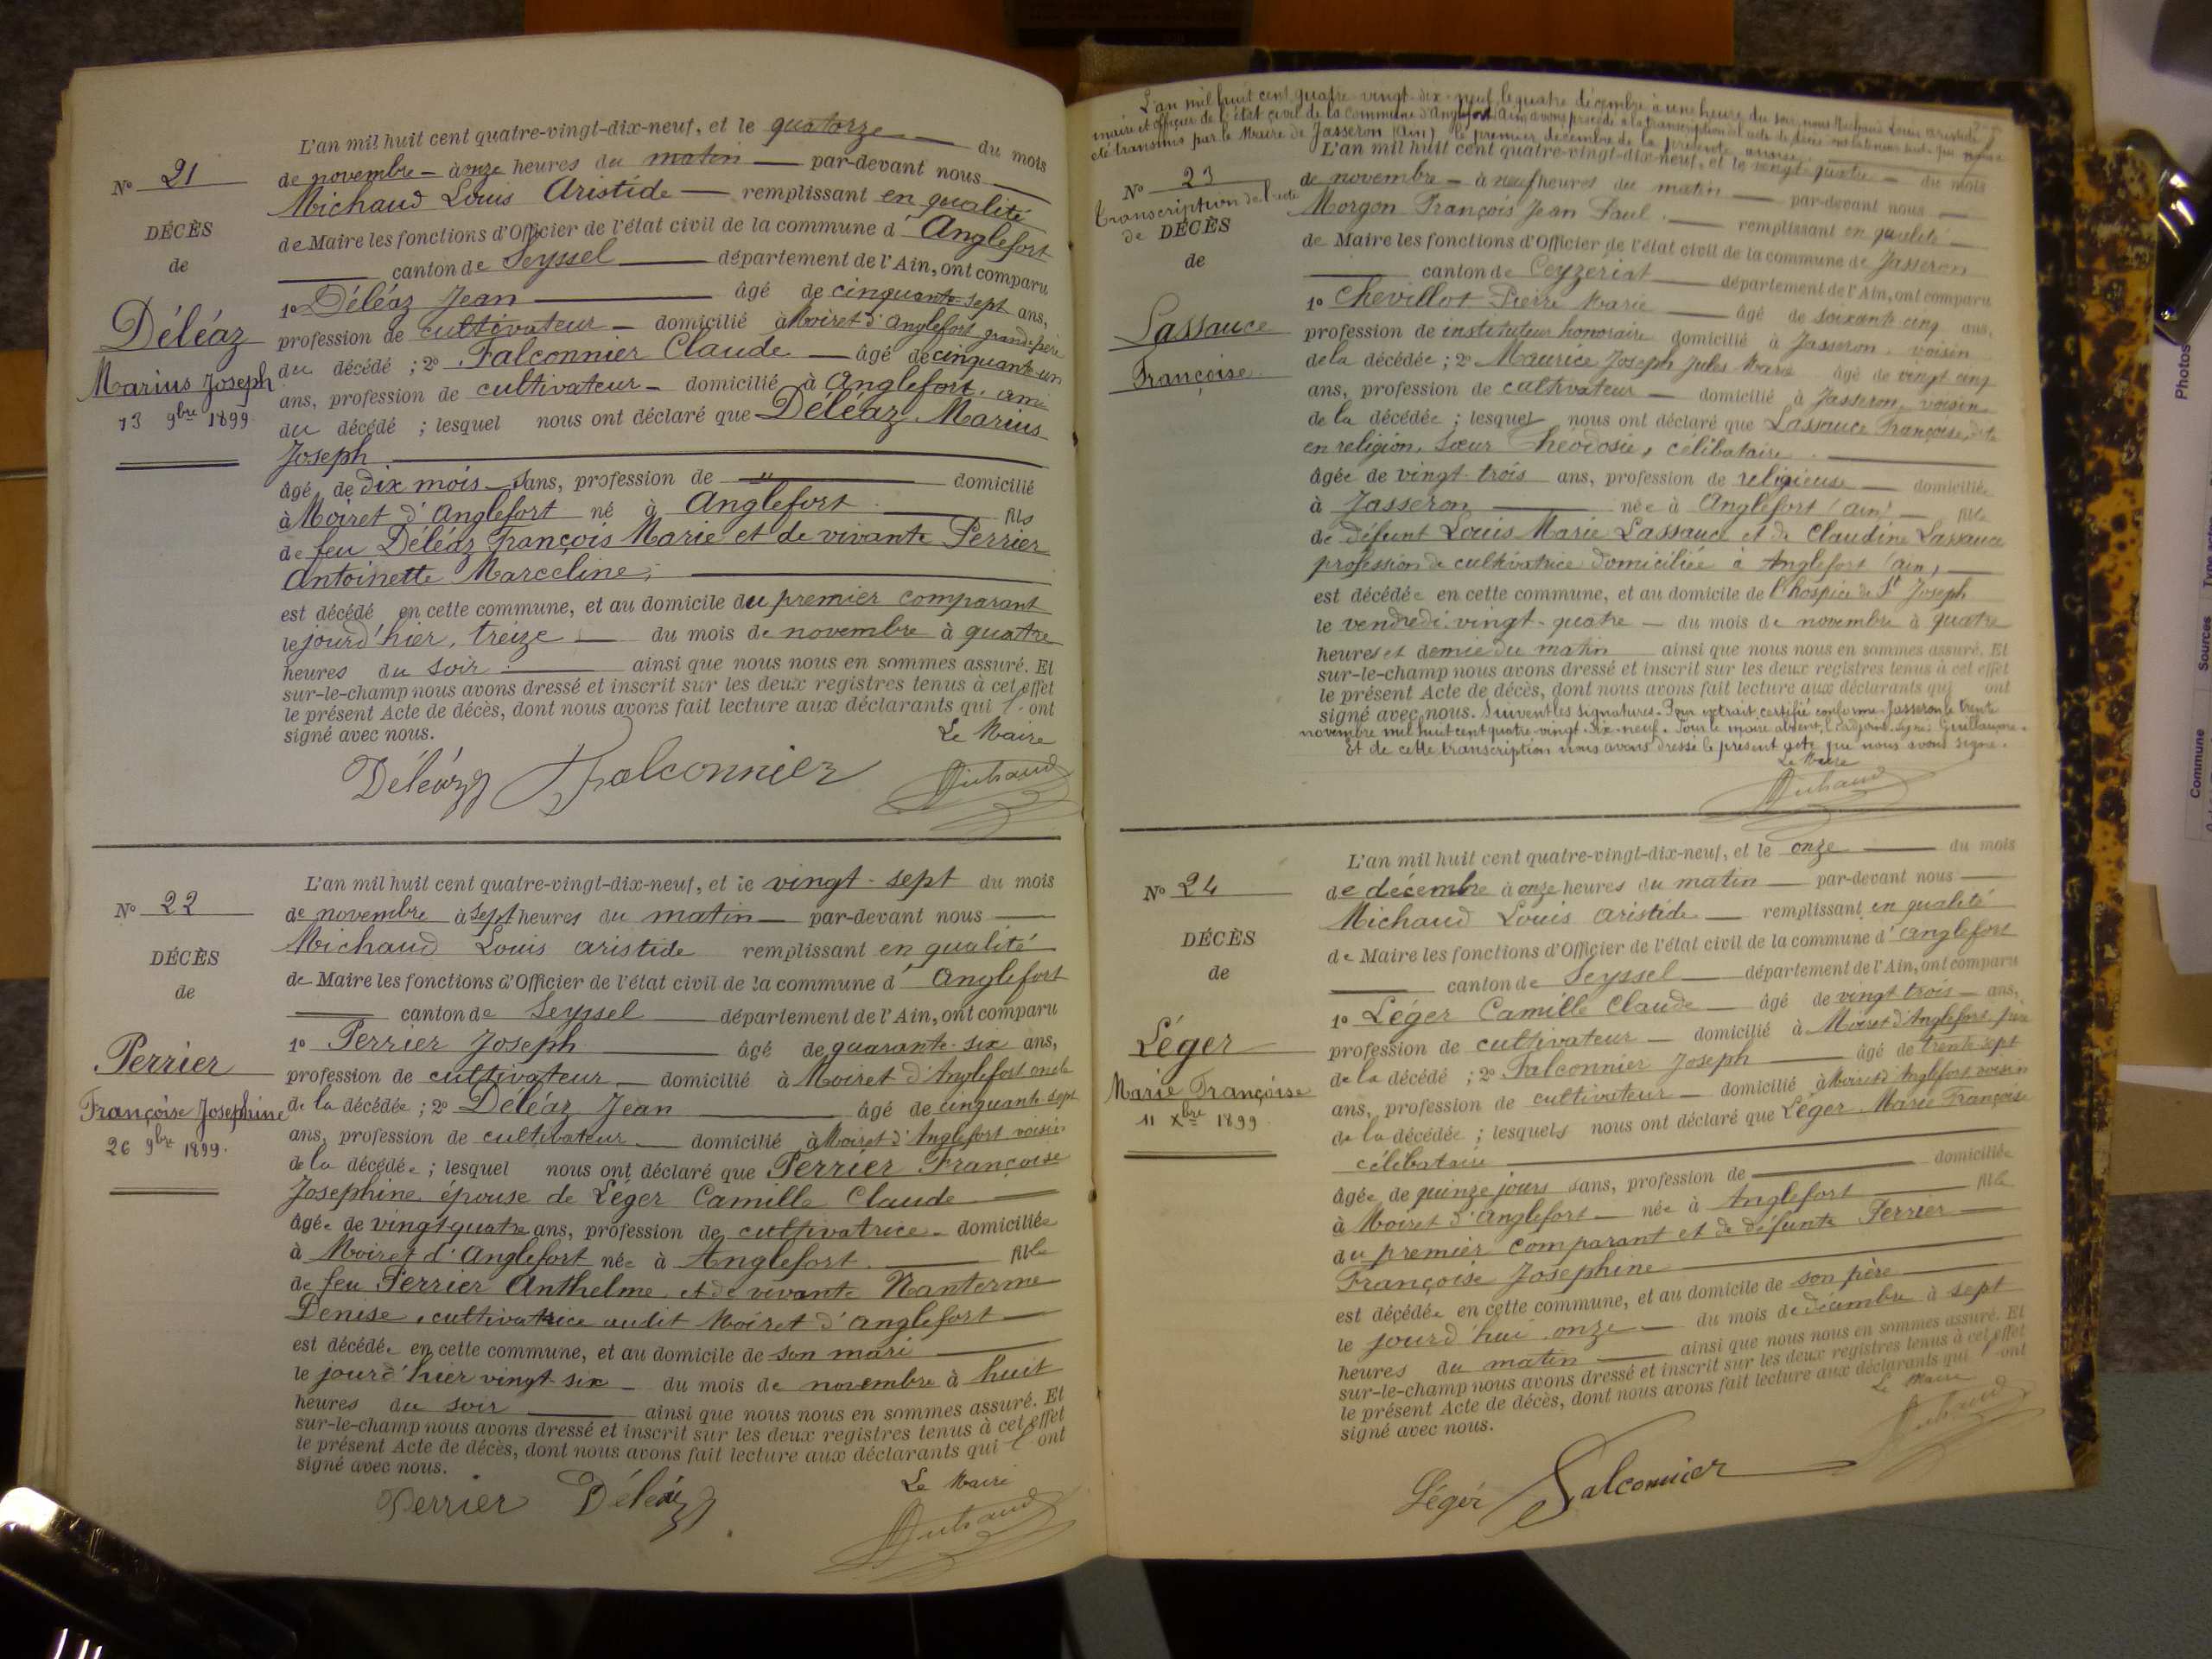 L'an mil huit cent quatre-vingt-dix-neuf, et le quatorze du mois
de novembre à onze heures du matin par-devant nous
Michaud Louis Aristide remplissant en qualité
de Maire les fonctions d'Officier de l'état civil de la commune d' Anglefort
canton de Seyssel département de l'Ain, ont comparu
1º Déléaz Jean âgé de cinquante-sept ans,
profession de cultivateur domicilié à Moiret d'Anglefort grand-père
du décédé ; 2º Falconnier Claude âgé de cinquante-un
ans, profession de cultivateur domicilié à Anglefort, ami
du décédé ; lesquel nous ont déclaré que Déléaz Marius
Joseph
âgé de dix mois sans, profession de " domicilié
à Moiret d'Anglefort né à Anglefort fils
de feu Déléaz François Marie et de vivante Perrier
Antoinette Marceline,
est décédé en cette commune, et au domicile du premier comparant
le jourd'hier, treize du mois de novembre à quatre
heures du soir ainsi que nous nous en sommes assuré. Et
sur-le-champ nous avons dressé et inscrit sur les deux registres tenus à cet effet
le présent Acte de décès, dont nous avons fait lecture aux déclarants qui l'ont
signé avec nous. Le Maire
Déléaz Falconnier Michaud
Nº 21
DÉCÈS
de
Déléaz
Marius Joseph
13 9bre 1899
L'an mil huit cent quatre-vingt-dix-neuf, et le vingt-sept du mois
de novembre à sept heures du matin par-devant nous
Michaud Louis Aristide remplissant en qualité
de Maire les fonctions d'Officier de l'état civil de la commune d' Anglefort
canton de Seyssel département de l'Ain, ont comparu
1º Perrier Joseph âgé de quarante-six ans,
profession de cultivateur domicilié à Moiret d'Anglefort oncle
de la décédée ; 2º Déléaz Jean âgé de cinquante-sept
ans, profession de cultivateur domicilié à Moiret d'Anglefort voisin
de la décédée ; lesquel nous ont déclaré que Perrier Françoise
Josephine, épouse de Léger Camille Claude
âgée de vingt-quatre ans, profession de cultivatrice domiciliée
à Moiret d'Anglefort née à Anglefort fille
de feu Perrier Anthelme et de vivante Nanterme
Denise, cultivatrice audit Moiret d'Anglefort
est décédée en cette commune, et au domicile de son mari
le jourd'hier vingt-six du mois de novembre à huit
heures du soir ainsi que nous nous en sommes assuré. Et
sur-le-champ nous avons dressé et inscrit sur les deux registres tenus à cet effet
le présent Acte de décès, dont nous avons fait lecture aux déclarants qui l'ont
signé avec nous.
Le Maire
Perrier Déléaz Michaud
Nº 22
DÉCÈS
de
Perrier
Françoise Josephine
26 9bre 1899.
L'an mil huit cent quatre-vingt-dix-neuf, le quatre décembre à une heure du soir, nous Michaud Louis Aristide
maire et officier de l'état civil de la commune d'Anglefort (Ain) avons procédé à la transcription de l'acte de décès
été transmis par le Maire de Jasseron (Ain) le premier décembre de la présente année.
L'an mil huit cent quatre-vingt-dix-neuf, et le vingt-quatre du mois
de novembre à neuf heures du matin par-devant nous
Morgon François Jean Paul remplissant en qualité
de Maire les fonctions d'Officier de l'état civil de la commune de Jasseron
canton de Ceyzeriat département de l'Ain, ont comparu
1º Chevillot Pierre Marie âgé de soixante-cinq ans,
profession de instituteur honoraire domicilié à Jasseron, voisin
de la décédée ; 2º Maurice Joseph Jules Marie âgé de vingt cinq
ans, profession de cultivateur domicilié à Jasseron, voisin
de la décédée ; lesquel nous ont déclaré que Lassauce Françoise, dite
en religion, Sœur Théodosie, célibataire
âgée de vingt-trois ans, profession de religieuse domiciliée
à Jasseron née à Anglefort (ain) fille
de défunt Louis Marie Lassauce et de Claudine Lassauce
profession de cultivatrice domiciliée à Anglefort (ain)
est décédée en cette commune, et au domicile de l'hospice de St Joseph
le vendredi vingt-quatre du mois de novembre à quatre
heures et demie du matin ainsi que nous nous en sommes assuré. Et
sur-le-champ nous avons dressé et inscrit sur les deux registres tenus à cet effet
le présent Acte de décès, dont nous avons fait lecture aux déclarants qui ont
signé avec nous. Suivent les signatures. Pour extrait certifié conforme. Jasseron le trente
novembre mil huit cent quatre-vingt-dix-neuf. Pour le maire absent, l'adjoint. signé: Guillaume.
Et de cette transcription nous avons dressé le présent acte que nous avons signé.
Le Maire
Michaud
Nº 23
Transcription de l'acte
de DÉCÈS
de
Lassauce
Françoise
L'an mil huit cent quatre-vingt-dix-neuf, et le onze du mois
de décembre à onze heures du matin par-devant nous
Michaud Louis Aristide remplissant en qualité
de Maire les fonctions d'Officier de l'état civil de la commune d' Anglefort
canton de Seyssel département de l'Ain, ont comparu
1º Léger Camille Claude âgé de vingt trois ans,
profession de cultivateur domicilié à Moiret d'Anglefort, père
de la décédé ; 2º Falconnier Joseph âgé de trente-sept
ans, profession de cultivateur domicilié à Moiret d'Anglefort voisin
de la décédée ; lesquels nous ont déclaré que Léger Marie Françoise
célibataire
âgée de quinze jours sans, profession de domiciliée
à Moiret d'Anglefort née à Anglefort fille
du premier comparant et de défunte Perrier
Françoise Josephine
est décédée en cette commune, et au domicile de son père
le jourd'hui onze du mois de décembre à sept
heures du matin ainsi que nous nous en sommes assuré. Et
sur-le-champ nous avons dressé et inscrit sur les deux registres tenus à cet effet
le présent Acte de décès, dont nous avons fait lecture aux déclarants qui l'ont
signé avec nous.
Le Maire
Léger Falconnier Michaud
Nº 24
DÉCÈS
de
Léger
Marie Françoise
11 Xbre 1899.
Photos
Sources
Commune